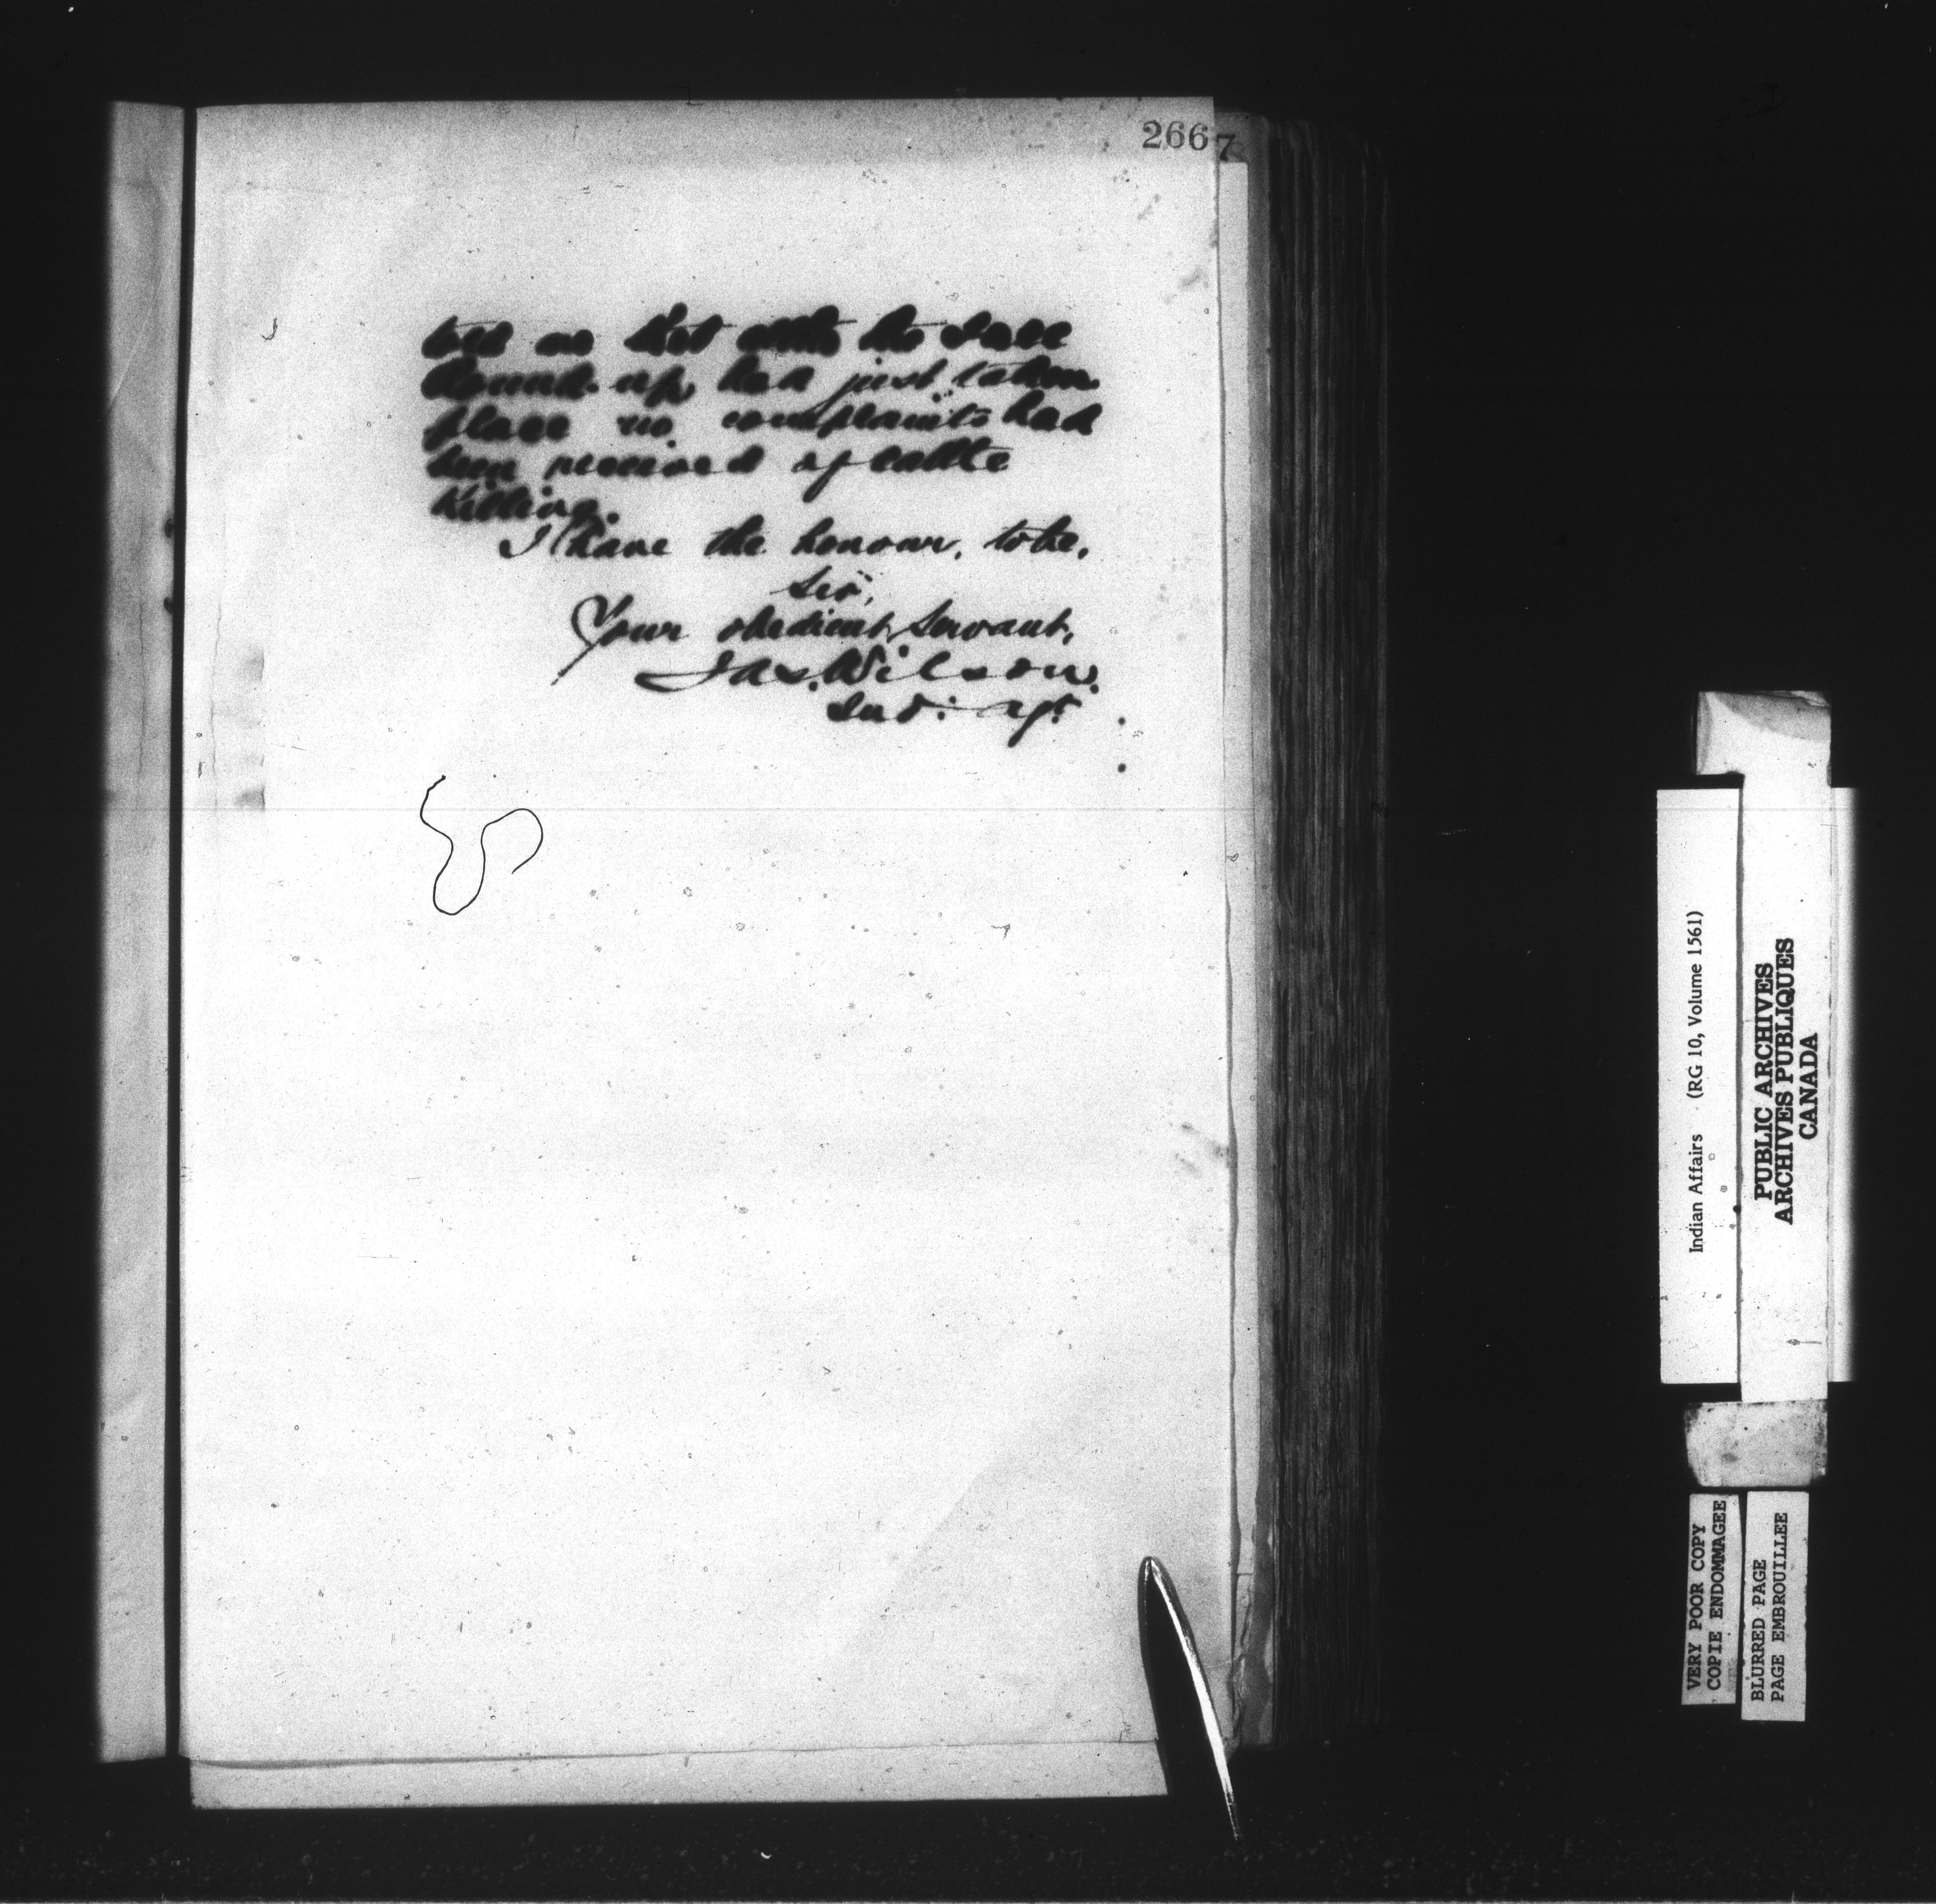 2667
told me that altho the
Round-up had just taken
place no complaints had
been received of cattle
Killing.
I have the honour, to be,
Sir,
Your obedient Servant,
Jas. Wilson.
Ind: Agt
Indian Affairs (RG 10, Volume 1561)
PUBLIC ARCHIVES
ARCHIVES PUBLIQUES
CANADA
VERY POOR COPY
COPIE ENDOMMAGEE
BLURRED PAGE
PAGE EMBROUILLEE